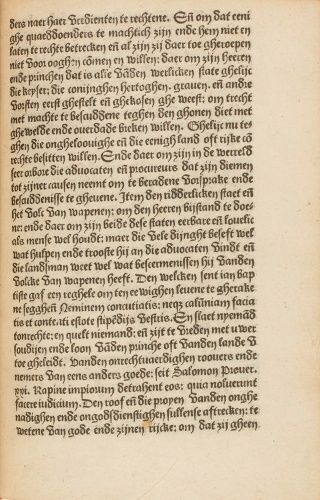 ders naer haer verdienten te rechtene. Eñ om dat eeni
ghe quaeddoenders te machtich zijn ende hem niet en
laten te recht betrecken eñ al zijn zij daer toe gheroepen
niet voor ooghen cōmen en willen: daer om zijn heeren
ende princhen dat is alle vāden werlicken state ghelijc
die keyser; die coninghen hertoghen, grauen, eñ andre
vorsten eerst ghestelt eñ ghekosen ghe weest: om trecht
met machte te bescuddene teghen den ghonen diet met
ghewelde ende ouerdade breken willen. Ghelijc nu te-
ghen die onghelooughe eñ die eenigh land oft rijke cō
trechte besitten willen. Ende daer om zijn in de werreld
seer orbore die aduocaten eñ procureurs dat zijn dienen
tot zijner causen neemt om te beradene vorsprake ende
bescuddenisse te gheuene. Item den ridderlicken staet eñ
het volc van wapenen: om den heeren bijstand te doe-
ne: ende daer om zijn beide dese staten eerbare eñ louelic
als mense wel houdt: maer die vele dijnght beseft wel
wat hulpen ende trooste hij an die aduocaten vindt eñ
die landsman weet wel wat beschermenissen hij vanden
volcke van wapenen heeft. Den welcken sent ian bap
tiste gaf een reghele om ten eewighen leuene te gherake
ne segghēn Neminem concutiatis: neqȝ calūniam facia
tis et contenti estote stipēdijs vestris. En slaet nyemād
tonrechte: en quelt niemand: eñ zijt te vreden met uwer
souldijen ende loon vāden prinche oft vanden lande v
toe gheleidt. vanden onrechtuaerdighen roouers ende
nemers van eens anders goede: seit Salomon Prouer.
xxi. Rapine impiorum detrahent eos: quia noluerunt
facere iudicium. Den roof eñ die proyen vanden onghe
nadighen ende ongodsdienstighen sullense aftrecken: te
wetene van gode ende zijnen rijcke: om dat zij gheen